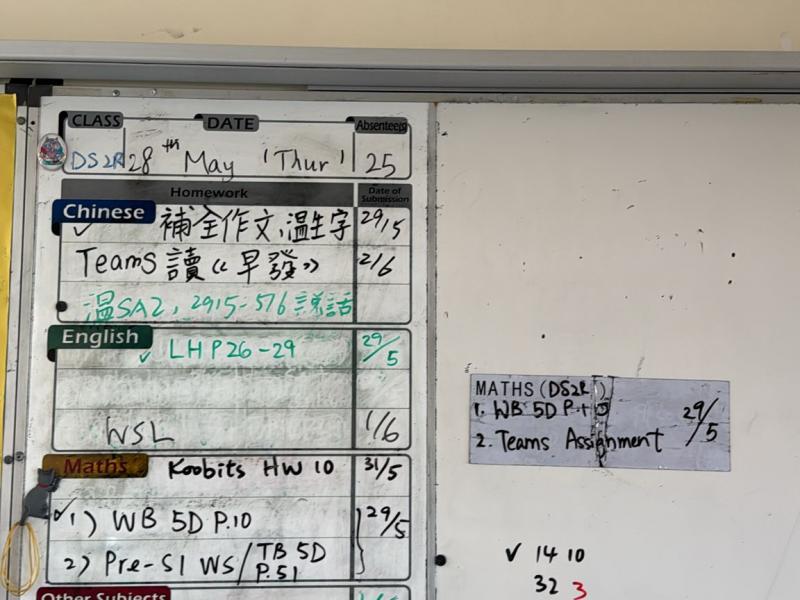 CLASS DATE Absentee(s)
DS2R 28th May 'Thur' 25
Homework Date of Submission
Chinese ✓ 補全作文,溫生字 29/5
Teams 讀《早發》 2/6
溫SA2, 29/5-5/6 說話
English ✓ LH P26-29 29/5
WSL 1/6
Maths Koobits HW 10 31/5
✓1) WB 5D P.10 29/5
2) Pre-S1 WS/TB 5D P.51
Other Subjects
MATHS (DS2R)
1. WB 5D P.10 29/5
2. Teams Assignment
✓ 14 10
32 3